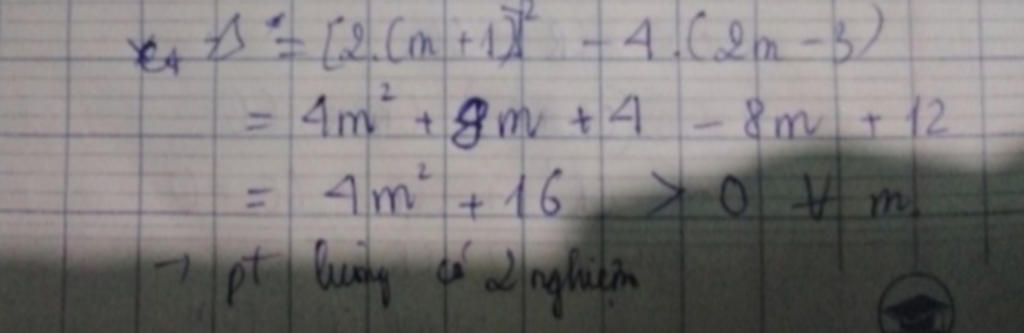 Δ = [2.(m+1)]² - 4.(2m - 3)
= 4m² + 8m + 4 - 8m + 12
= 4m² + 16 > 0 ∀ m.
→ pt luông có 2 nghiệm